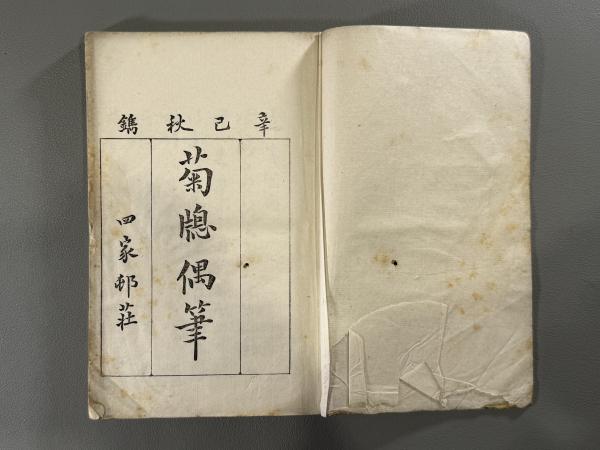 辛巳秋鐫
菊牕偶筆
四家邨莊